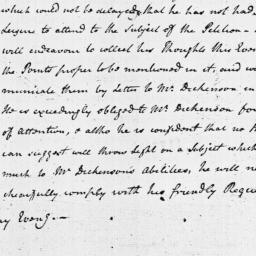 which could not be delayed, that he has not had
Leisure to attend to the Subject of the Petition –
will endeavour to collect his Thoughts this Even
the Points proper to be mentioned in it, and w
municate them by Letter to Mr. Dickenson in
He is exceedingly obliged to Mr. Dickenson for
of Attention, & altho he is confident that no
can suggest will throw Light on a Subject which
much to Mr. Dickenson's Abilities, he will no
chearfully comply with his friendly Reque
ay Eveng. –